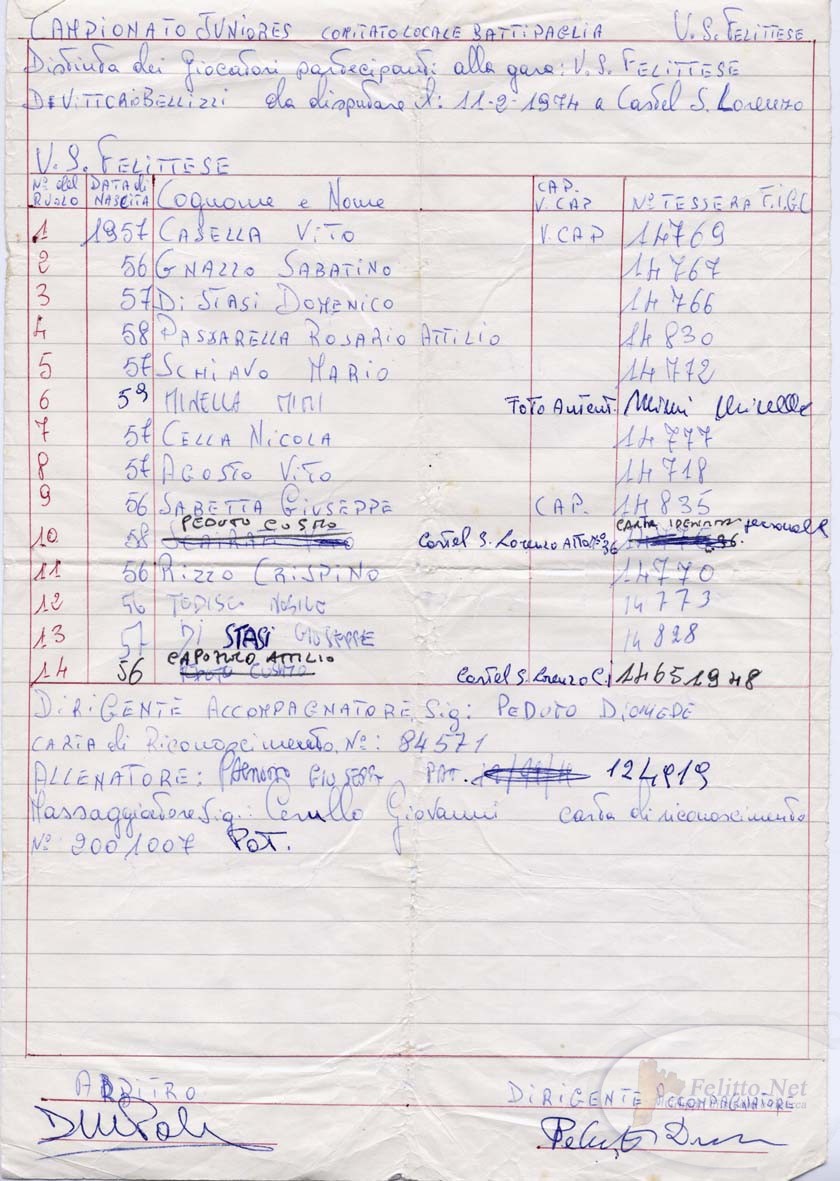 CAMPIONATO JUNIORES COMITATO LOCALE BATTIPAGLIA U.S. FELITTESE
Distinta dei giocatori partecipanti alla gara: U.S. FELITTESE
da disputare il: 11-2-1974 a Castel S. Lorenzo
U.S. FELITTESE
N° del RUOLO DATA di NASCITA Cognome e Nome CAP. V. CAP N° TESSERA F.I.G.C
1 1957 CASELLA VITO V. CAP 14769
2 56 GNAZZO SABATINO 14767
3 57 DI STASI DOMENICO 14766
4 58 PASSARELLA ROSARIO ATTILIO 14830
5 57 SCHIAVO MARIO 14772
6 59 MINELLA MIMI FOTO AUTENT. Mimi Minella
7 57 CELLA NICOLA 14777
8 57 AGOSTO VITO 14718
9 56 SABETTA GIUSEPPE CAP. 14835
10 58 PEDUTO COSMO Castel S. Lorenzo Atto N° 36 CARTA IDENTITA personale
11 56 RIZZO CRISPINO 14770
12 56 TODISCO 14773
13 57 DI STASI GIUSEPPE 14828
14 56 CAPOZOLO ATTILIO Castel S. Lorenzo C.i 14651948
DIRIGENTE ACCOMPAGNATORE Sig: PEDUTO DIOMEDE
CARTA di Riconoscimento N°: 84571
ALLENATORE: GIUSEPPE PAT. 124919
Massaggiatore Sig: Cerullo Giovanni carta di riconoscimento
N° 2001007 PAT.
ARBITRO DIRIGENTE ACCOMPAGNATORE
Felitto.Net